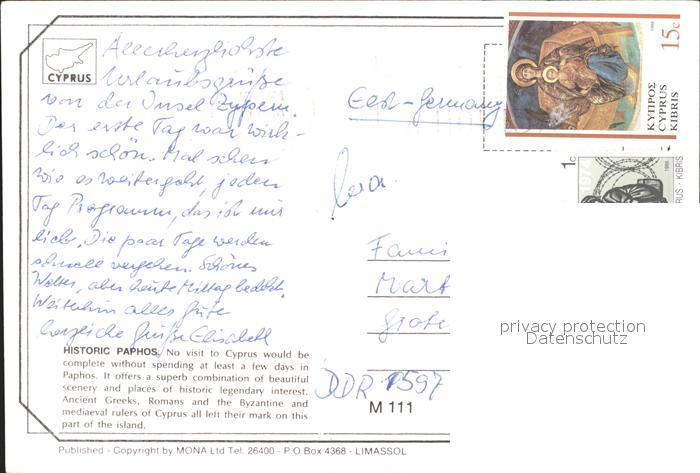 CYPRUS
Allerherzlichste
Urlaubsgrüße
von der Insel Zypern.
Der erste Tag war wirk-
lich schön. Mal sehen
wie es weitergeht, jeden
Tag Programm, das ist mir
lieb. Die paar Tage werden
schnell vergehen. Schönes
Wetter, aber heute Mittag bedeckt.
Weiterhin alles Gute
herzliche Grüße Elisabeth
HISTORIC PAPHOS. No visit to Cyprus would be
complete without spending at least a few days in
Paphos. It offers a superb combination of beautiful
scenery and places of historic legendary interest.
Ancient Greeks, Romans and the Byzantine and
mediaeval rulers of Cyprus all left their mark on this
part of the island.
Published - Copyright by MONA Ltd Tel. 26400 - P.O.Box 4368 - LIMASSOL
East-Germany
Fami
Mart
DDR 1597
M 111
15c
ΚΥΠΡΟΣ
CYPRUS
KIBRIS
1c
1974
RUS - KIBRIS
1988
privacy protection
Datenschutz